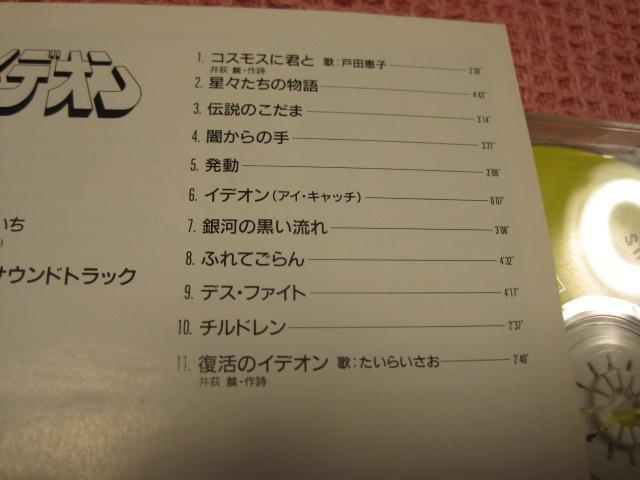 イデオン
いち
サウンドトラック
1. コスモスに君と 歌:戸田恵子 3'30"
井荻 麟・作詩
2. 星々たちの物語 4'43"
3. 伝説のこだま 3'14"
4. 闇からの手 3'27"
5. 発動 3'09"
6. イデオン(アイ・キャッチ) 0'07"
7. 銀河の黒い流れ 3'06"
8. ふれてごらん 4'32"
9. デス・ファイト 4'17"
10. チルドレン 2'37"
11. 復活のイデオン 歌:たいらいさお 2'40"
井荻 麟・作詩